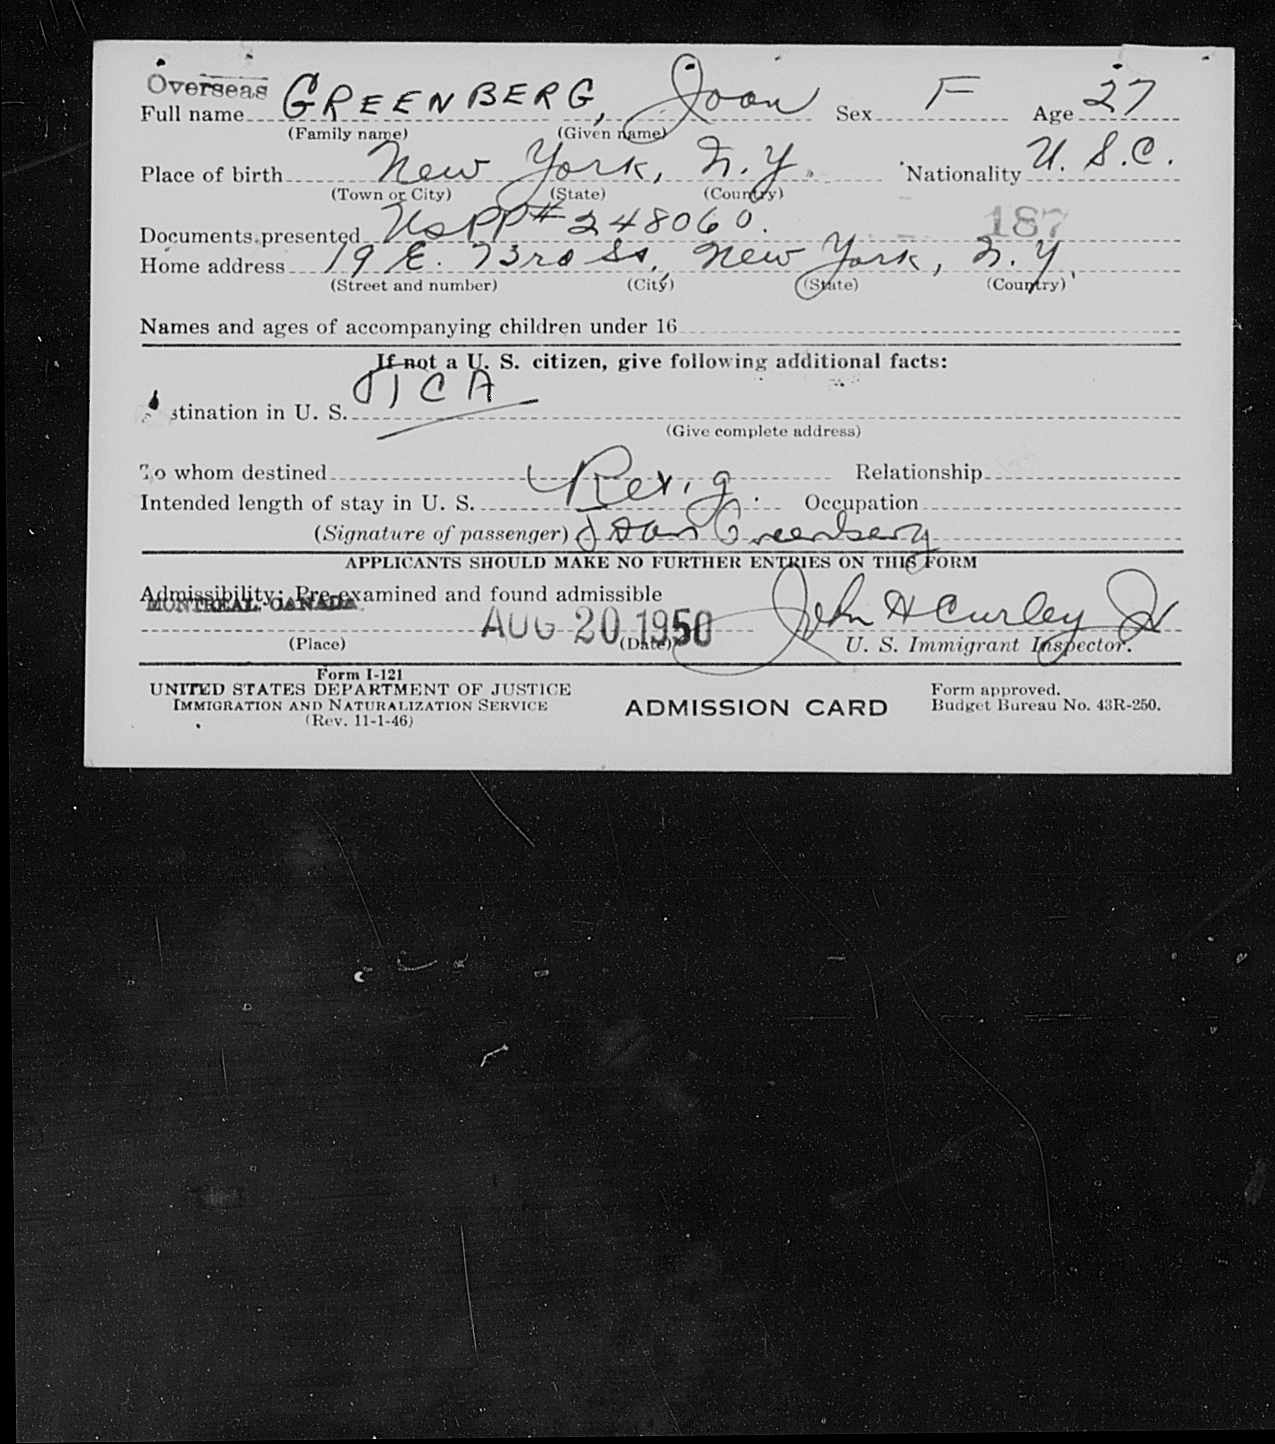 Overseas
Full name GREENBERG, Joan Sex F Age 27
(Family name) (Given name)
Place of birth New York, N.Y. Nationality U.S.C.
(Town or City) (State) (Country)
187
Documents presented US PP# 248060.
Home address 19 E. 73rd St., New York, N.Y.
(Street and number) (City) (State) (Country)
Names and ages of accompanying children under 16
If not a U. S. citizen, give following additional facts:
TCA
stination in U. S.
(Give complete address)
To whom destined Relationship
Intended length of stay in U. S. Occupation
(Signature of passenger) Joan Greenberg
APPLICANTS SHOULD MAKE NO FURTHER ENTRIES ON THIS FORM
Admissibility: Pre-examined and found admissible
MONTREAL. CANADA
AUG 20 1950 John H Curley Jr
(Place) (Date) U. S. Immigrant Inspector.
Form I-121
UNITED STATES DEPARTMENT OF JUSTICE
IMMIGRATION AND NATURALIZATION SERVICE
(Rev. 11-1-46)
ADMISSION CARD
Form approved.
Budget Bureau No. 43R-250.